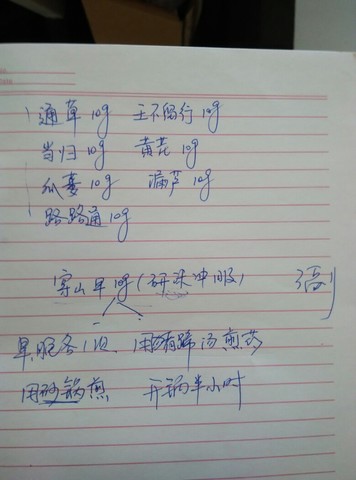 通草10g 王不留行10g
当归10g 黄芪10g
瓜蒌10g 漏芦10g
路路通10g
穿山甲10g(研沫冲服) 3副
早晚各1次 用猪蹄汤煎药
用砂锅煎 开锅半小时